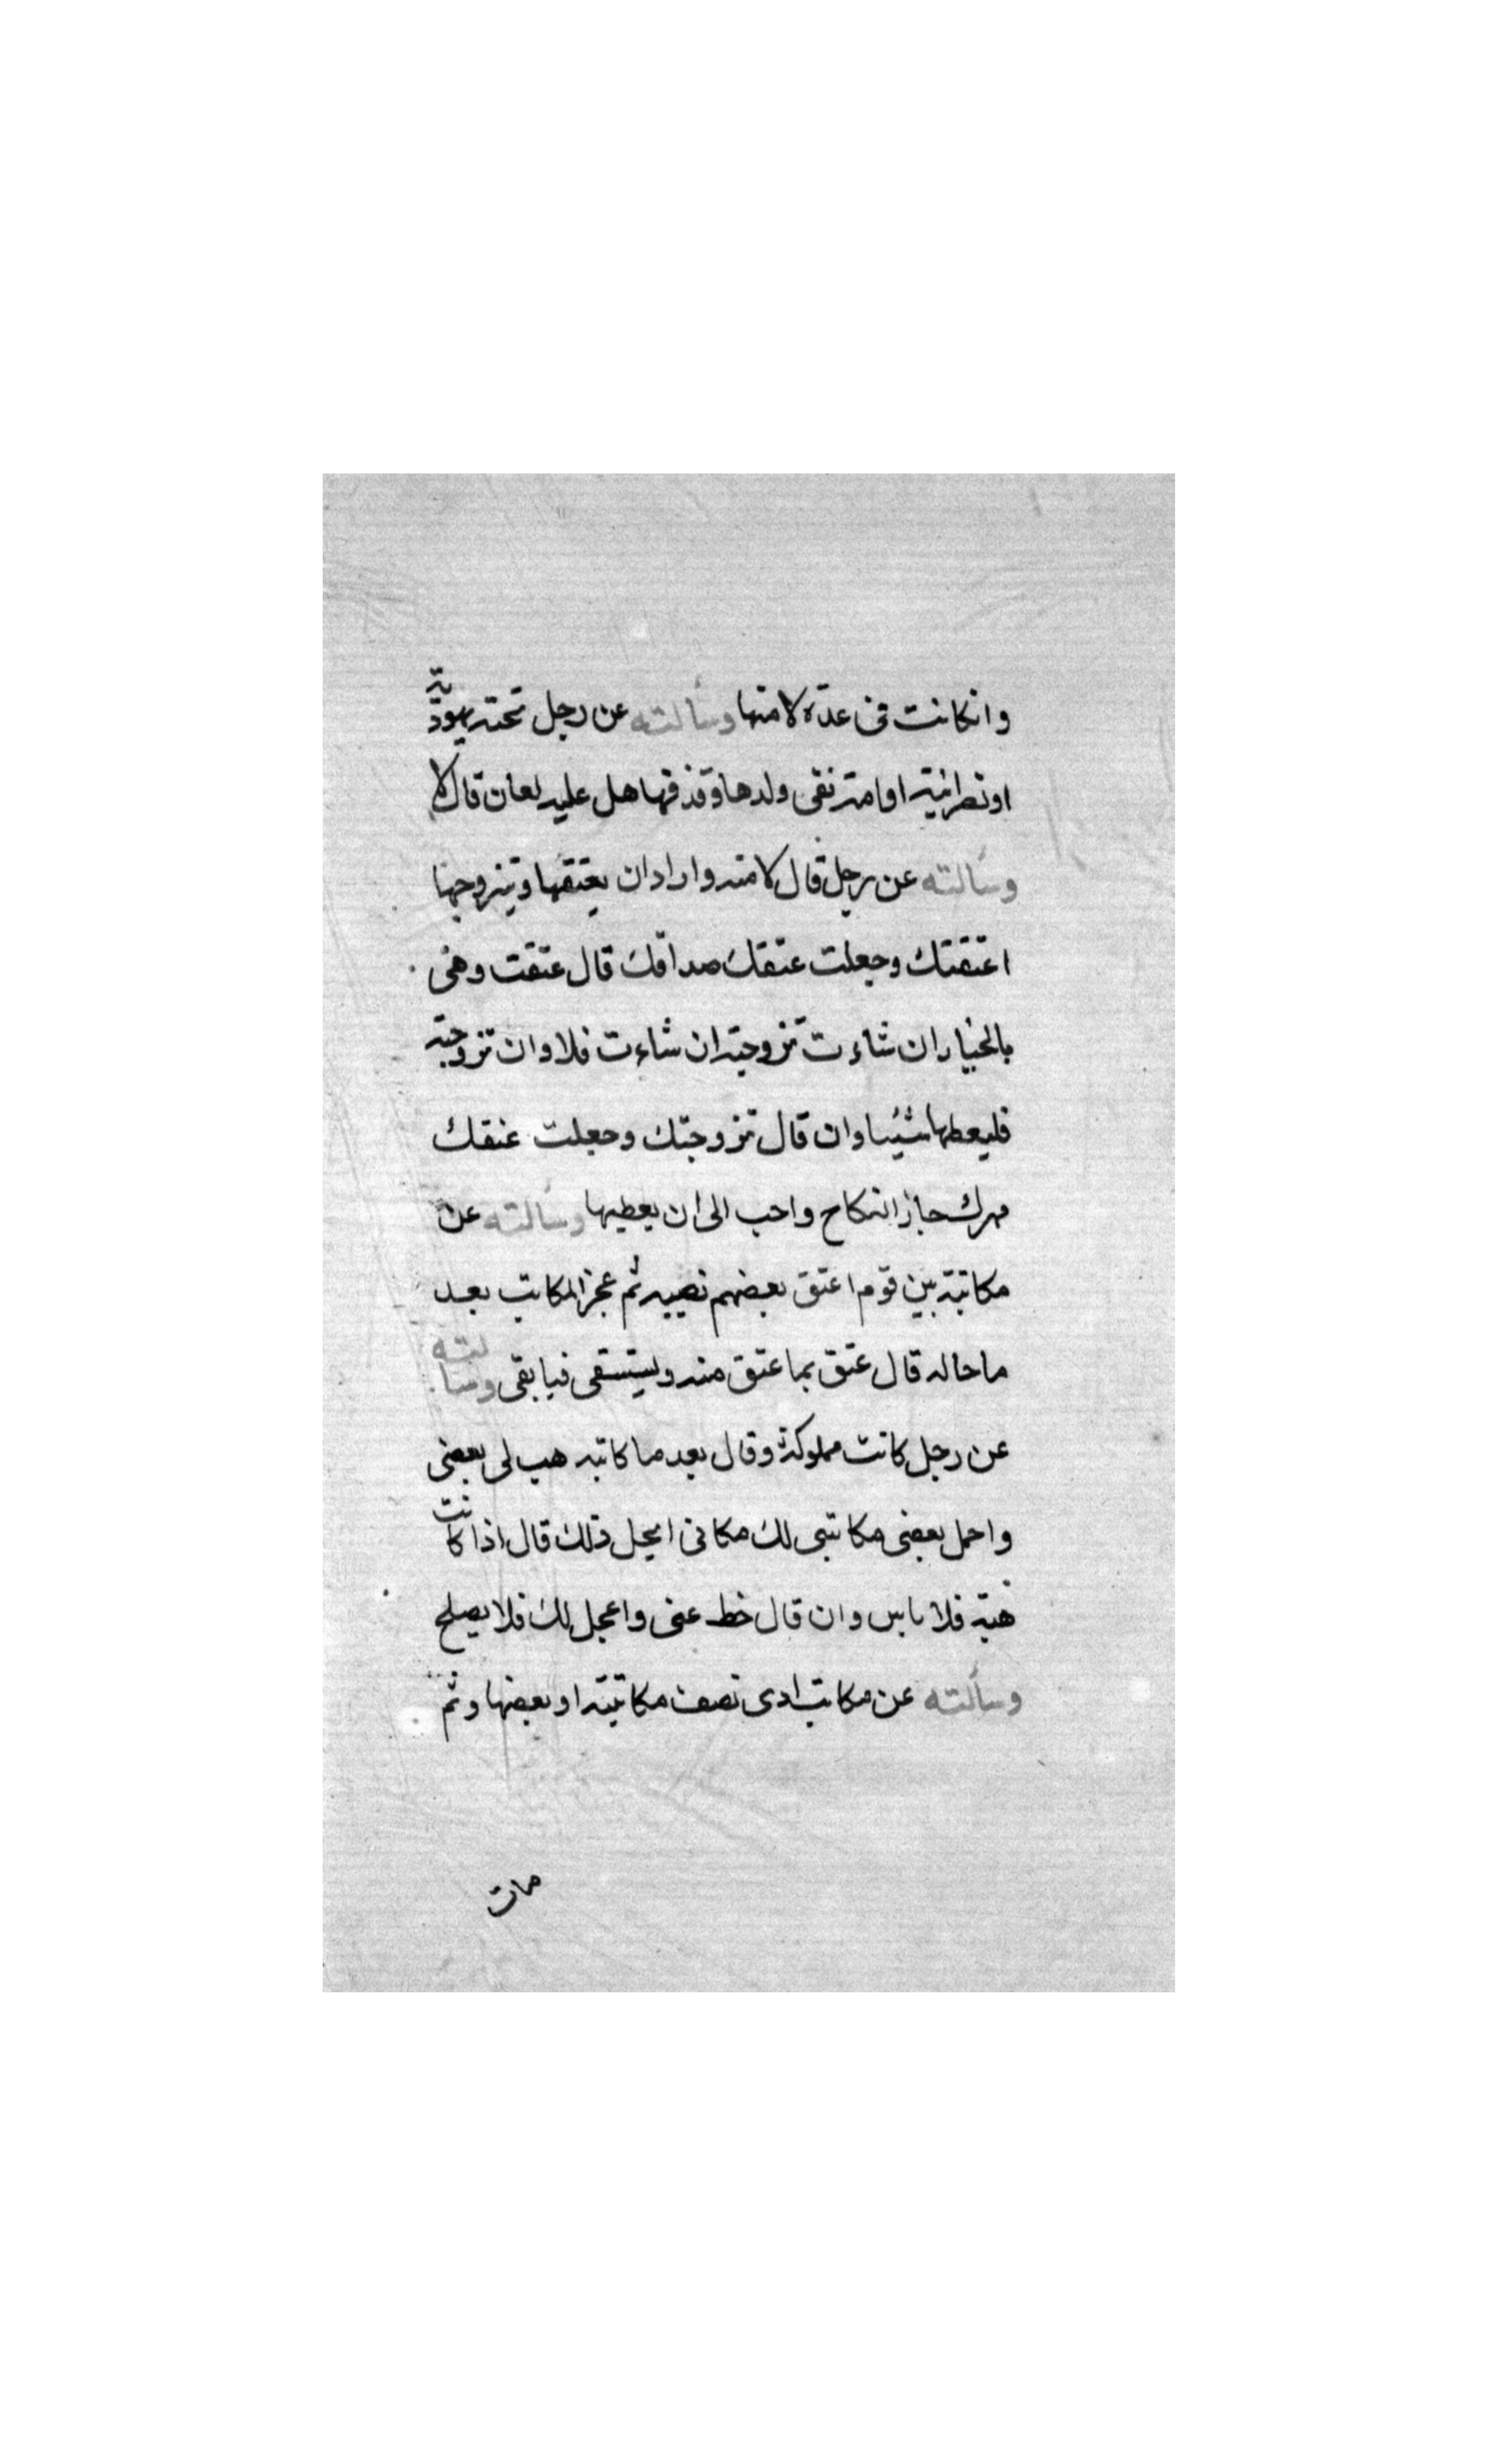 وانكانت فى عدة لامتها وسألته عن رجل تحته يهودية
او نصرانية او امة نفى ولدها وقذفها هل عليه لعان قال لا
وسألته عن رجل قال لامته واراد ان يعتقها ويتزوجها
اعتقتك وجعلت عتقك صداقك قال عتقت وهى
بالخيار ان شاءت تزوجته ان شاءت فلا وان تزوجته
فليعطها شيئا وان قال تزوجتك وجعلت عتقك
مهرك جاز النكاح واحب الى ان يعطيها وسألته عن
مكاتبة بين قوم اعتق بعضهم نصيبه ثم عجز المكاتب بعد
ما حاله قال عتق بما عتق منه ويستسقى فيما بقى وسألته
عن رجل كاتب مملوكة وقال بعد ما كاتبه هب لى بعضى
واحمل بعضى مكاتبى لك مكانى ايحل ذلك قال اذا كانت
هبة فلا باس وان قال خط عنى واعجل لك فلا يصلح
وسألته عن مكاتب ادى نصف مكاتبته او بعضها وثم
مات